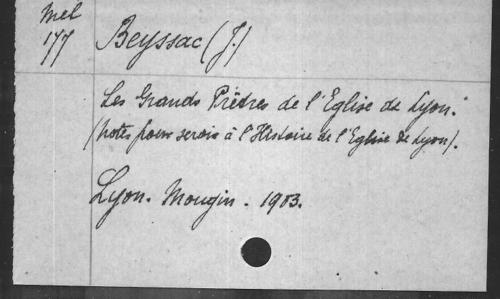 Mel
177
Beyssac (J.)
Les Grands Prêtres de l'Eglise de Lyon.
(notes pour servir à l'Histoire de l'Eglise de Lyon).
Lyon. Mougin. 1903.